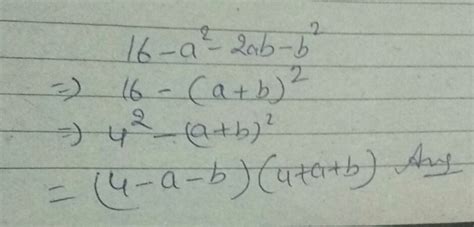 16 - a² - 2ab - b²
=> 16 - (a+b)²
=> 4² - (a+b)²
= (4-a-b)(4+a+b) Ans